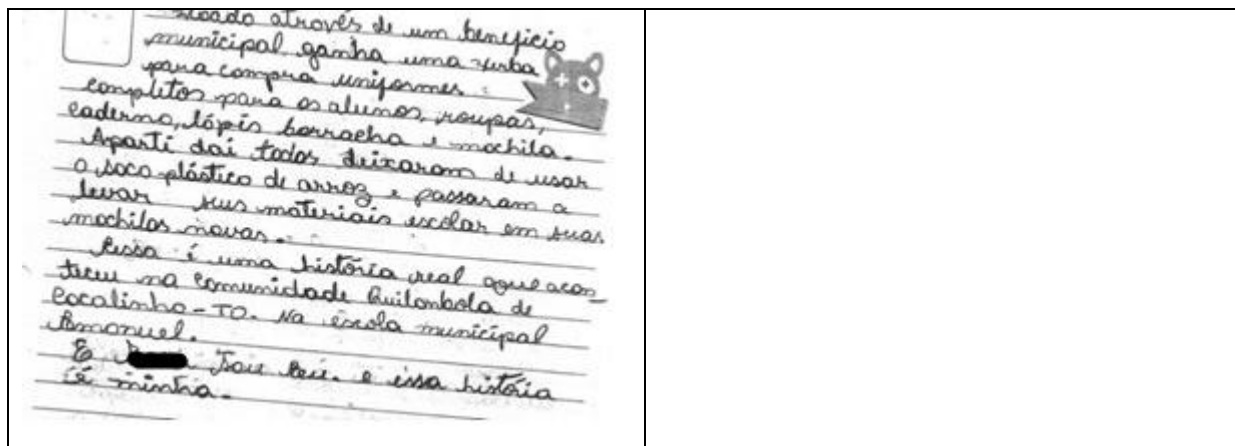 através de um beneficio
municipal ganha uma verba
para compra uniformes
completos para os alunos, roupas,
caderno, lápis borracha e mochila.
Aparti daí todos deixaram de usar
o saco plástico de arroz e passaram a
levar seus materiais escolar em suas
mochilas novas.
Essa é uma história real que acon
teceu na comunidade Quilombola de
Cocalinho-TO. Na escola municipal
Emanuel.
E sou eu. e essa história
é minha.